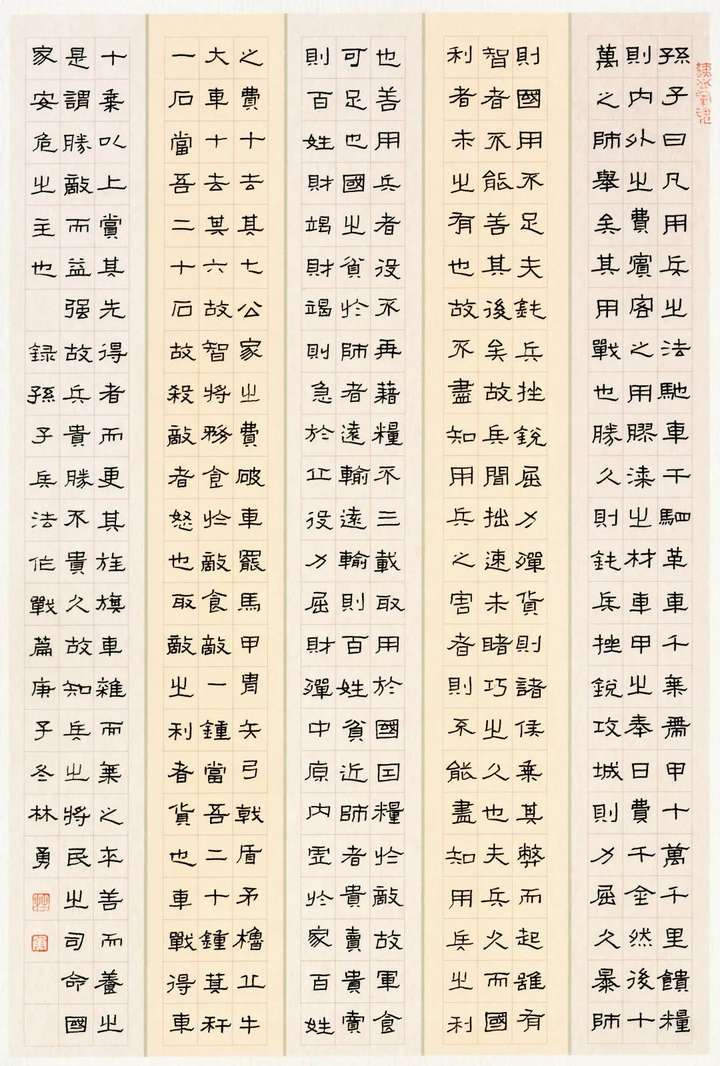 孫子曰凡用兵之法馳車千駟革車千乘帶甲十萬千里饋糧
則内外之費賓客之用膠漆之材車甲之奉日費千金然後十
萬之師舉矣其用戰也勝久則鈍兵挫銳攻城則力屈久暴師
則國用不足夫鈍兵挫銳屈力殫貨則諸侯乘其弊而起雖有
智者不能善其後矣故兵聞拙速未睹巧之久也夫兵久而國
利者未之有也故不盡知用兵之害者則不能盡知用兵之利
也善用兵者役不再藉糧不三載取用於國因糧於敵故軍食
可足也國之貧於師者遠輸遠輸則百姓貧近師者貴賣貴賣
則百姓財竭財竭則急於丘役力屈財殫中原内虛於家百姓
之費十去其七公家之費破車罷馬甲胄矢弓戟盾矛櫓丘牛
大車十去其六故智將務食於敵食敵一鍾當吾二十鍾萁秆
一石當吾二十石故殺敵者怒也取敵之利者貨也車戰得車
十乘以上賞其先得者而更其旌旗車雜而乘之卒善而養之
是謂勝敵而益强故兵貴勝不貴久故知兵之將民之司命國
家安危之主也 録孫子兵法作戰篇庚子冬林勇